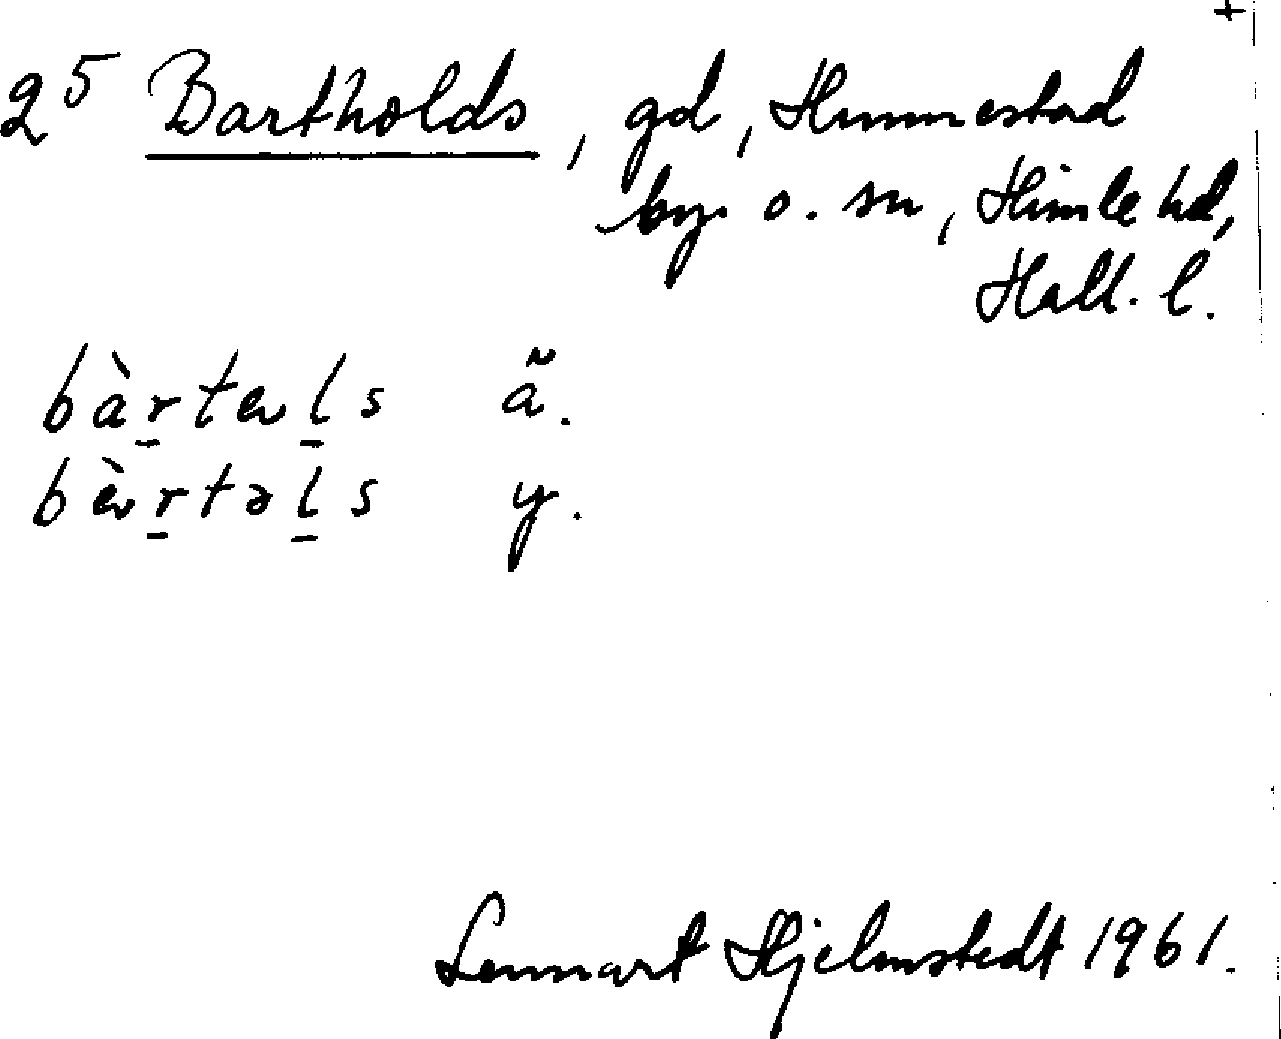 2⁵ Bartholds, gd, Hunnestad
by o. sn, Himle hd,
Hall. l.
bàr̲tal̲s ã.
bàr̲təl̲s y.
Lennart Hjelmstedt 1961.